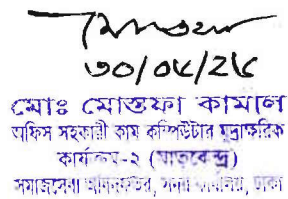 মোস্তফা
৩০/০৪/২৫
মোঃ মোস্তফা কামাল
অফিস সহকারী কাম কম্পিউটার মুদ্রাক্ষরিক
কার্যক্রম-২ (মাতৃকেন্দ্র)
সমাজসেবা অধিদফতর, সদর কার্যালয়, ঢাকা